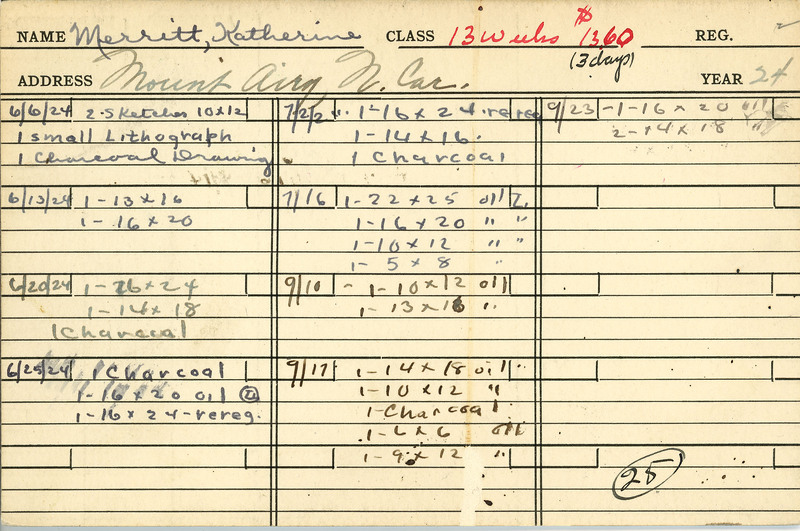 NAME Merritt, Katherine CLASS 13 weeks $1360 REG.
(3 days)
ADDRESS Mount Airy N. Car. YEAR 24
6/6/24 2 Sketches 10x12
1 small Lithograph
1 Charcoal Drawing
6/13/24 1-13x16
1-16x20
6/20/24 1-26x24
1-14x18
1 Charcoal
6/25/24 1 Charcoal
1-16x20 oil
1-16x24-rereg.
7/2/2 1-16x24 rereg
1-14x16.
1 Charcoal
7/16 1-22x25 oil I.
1-16x20 " "
1-10x12 " "
1-5x8 "
9/10 - 1-10x12 oil
1-13x16 "
9/17 1-14x18 oil
1-10x12 "
1-Charcoal
1-6x6 oil
1-9x12 "
9/23 -1-16x20 oil
2-14x18 "
25